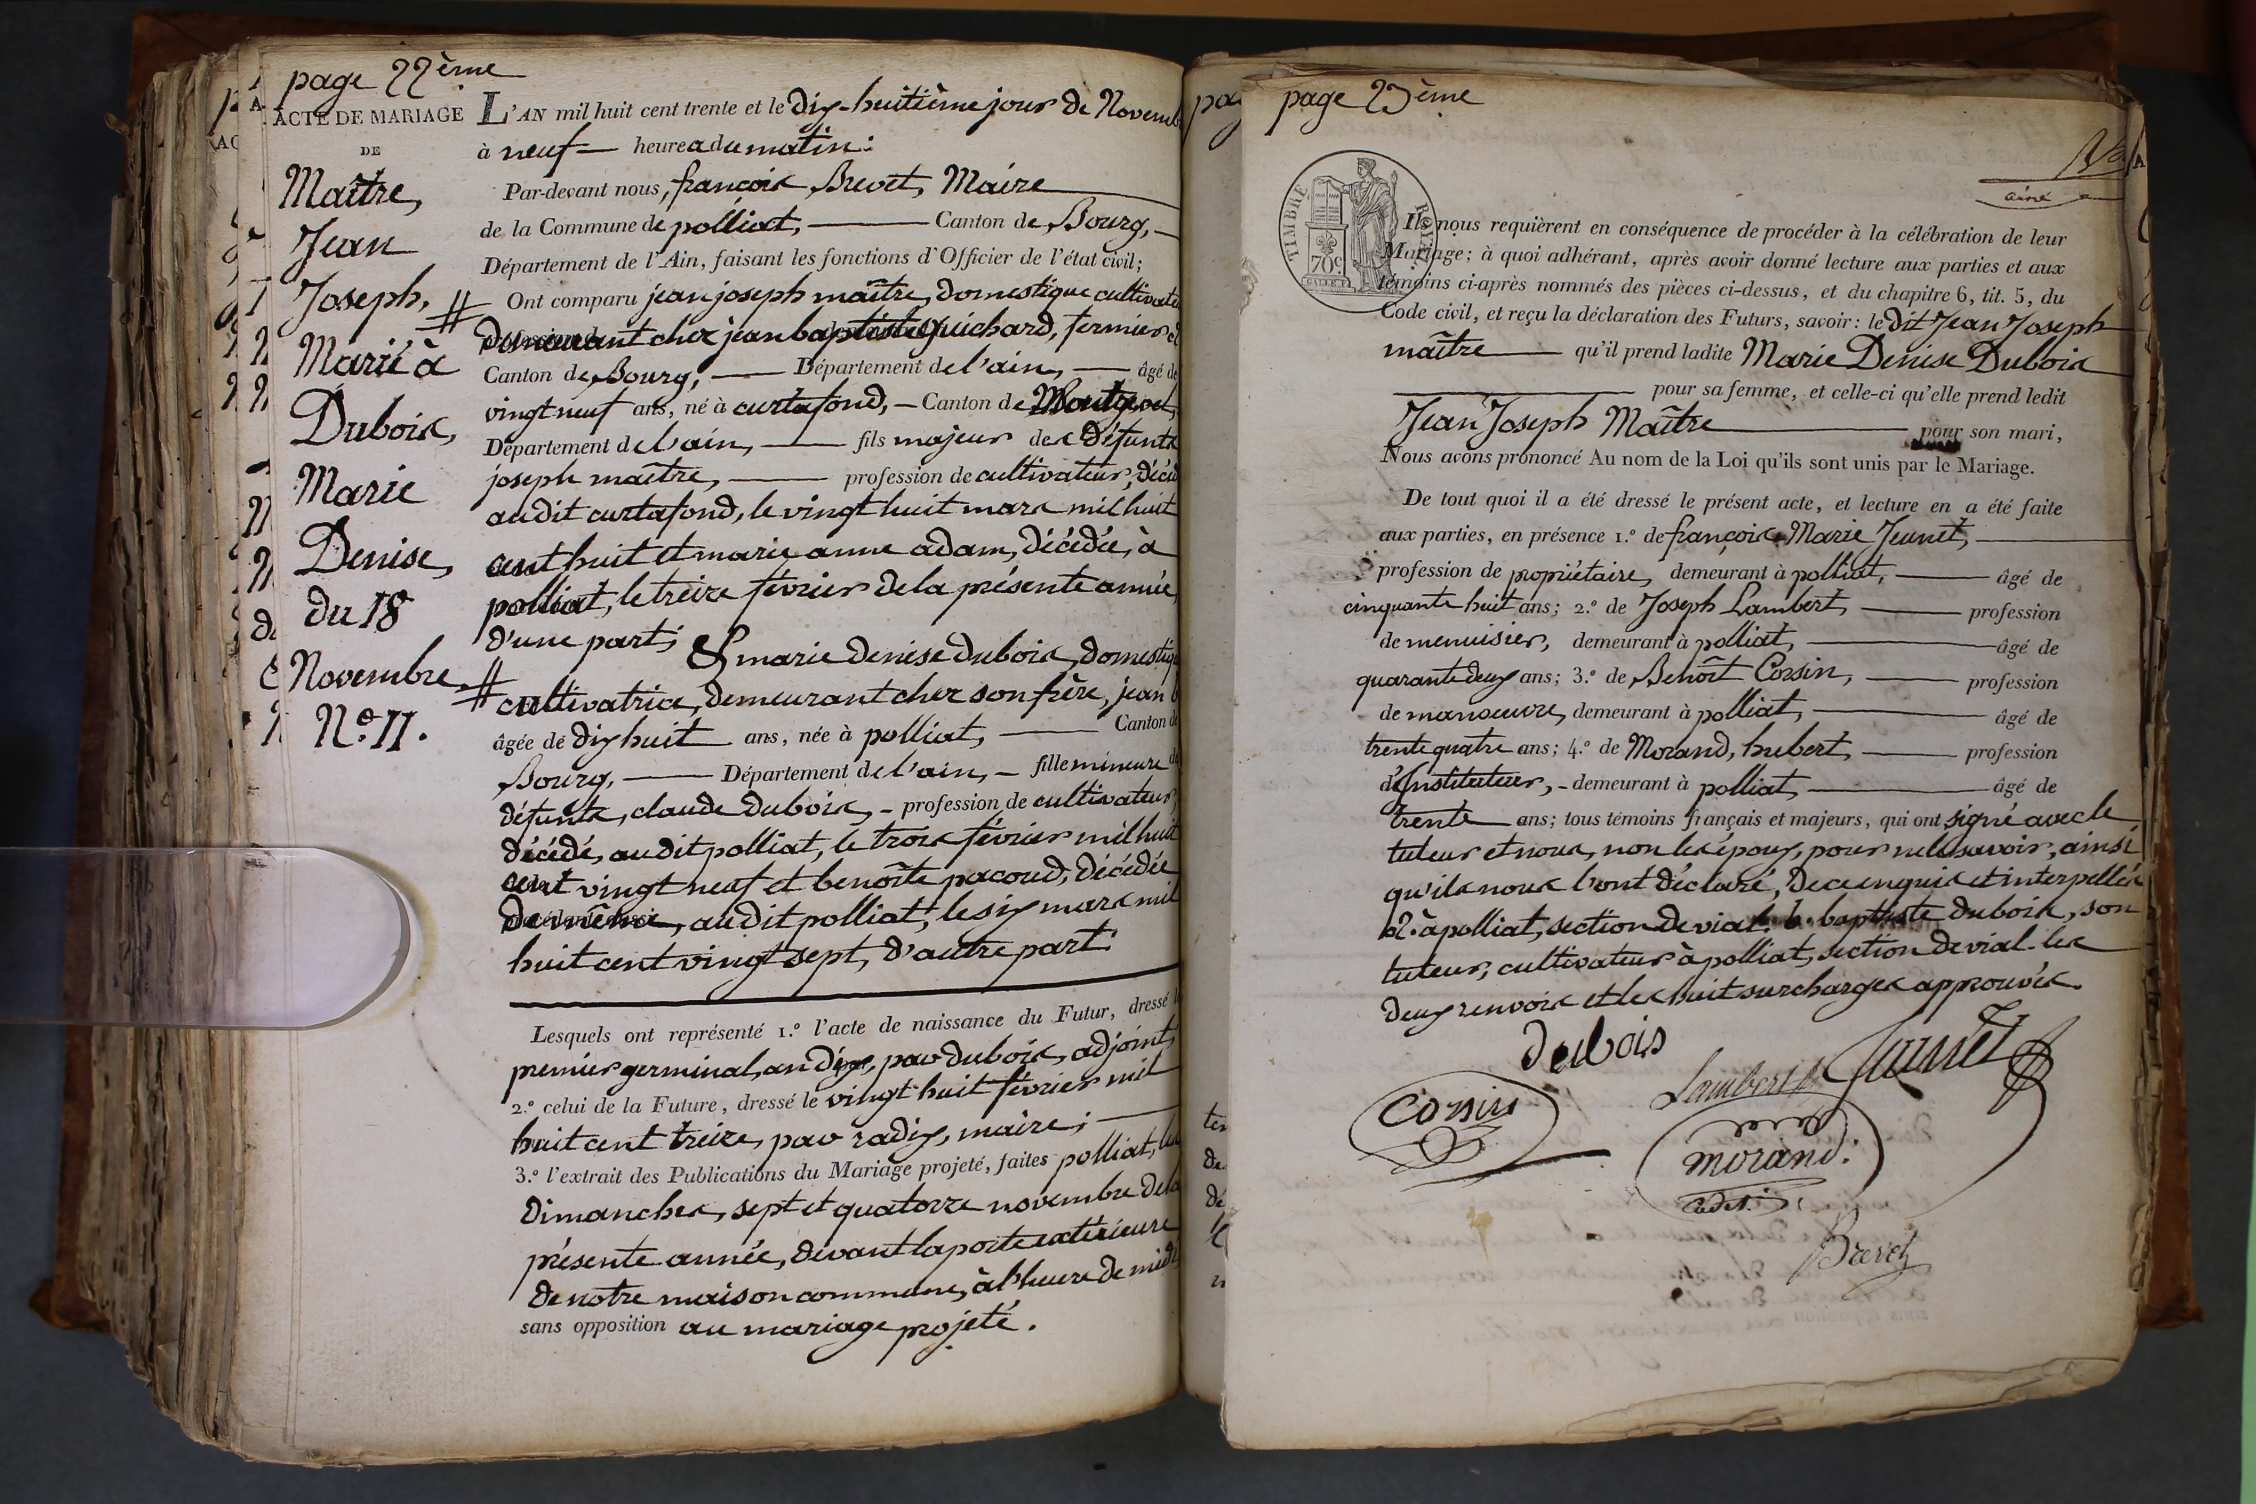 page 22ème
ACTE DE MARIAGE
DE
Maître,
Jean
Joseph,
Marié à
Dubois,
Marie
Denise,
du 18
Novembre
N.º 11.
L'AN mil huit cent trente et le dix-huitième jour de Novemb
à neuf heures du matin:
Par-devant nous, françois Brevet, Maire
de la Commune de polliat, Canton de Bourg,
Département de l'Ain, faisant les fonctions d'Officier de l'état civil;
# Ont comparu jean joseph maître, domestique cultivate
demeurant chez jean baptiste guichard, fermier
Canton de Bourg, Département de l'ain, âgé de
vingt neuf ans, né à curtafond, Canton de Montrevel,
Département de l'ain, fils majeur des défunts
joseph maître, profession de cultivateur, décéd
audit curtafond, le vingt huit mars mil huit
cent huit et marie anne adam, décédée, à
polliat, le treize février de la présente année,
d'une part;
& marie denise dubois, domestiq
# cultivatrice, demeurant chez son frère, jean b
âgée de dix huit ans, née à polliat, Canton de
Bourg, Département de l'ain, fille mineure de
défunts, claude dubois, profession de cultivateur,
décédé, audit polliat, le trois février mil huit
cent vingt neuf et benoîte pacoud, décédée
de même, audit polliat, le six mars mil
huit cent vingt sept, d'autre part.
Lesquels ont représenté 1.º l'acte de naissance du Futur, dressé le
premier germinal, an dix, par dubois, adjoint,
2.º celui de la Future, dressé le vingt huit février mil
huit cent treize, par radix, maire;
3.º l'extrait des Publications du Mariage projeté, faites polliat, les
dimanches, sept et quatorze novembre de la
présente année, devant la porte extérieure
de notre maison commune, à l'heure de midi
sans opposition au mariage projeté.
page 23ème
aîné
TIMBRE ROYAL
70c
Ils nous requièrent en conséquence de procéder à la célébration de leur
Mariage; à quoi adhérant, après avoir donné lecture aux parties et aux
témoins ci-après nommés des pièces ci-dessus, et du chapitre 6, tit. 5, du
Code civil, et reçu la déclaration des Futurs, savoir: le dit Jean Joseph
maître qu'il prend ladite Marie Denise Dubois
pour sa femme, et celle-ci qu'elle prend ledit
Jean Joseph Maître pour son mari,
Nous avons prononcé Au nom de la Loi qu'ils sont unis par le Mariage.
De tout quoi il a été dressé le présent acte, et lecture en a été faite
aux parties, en présence 1.º de françois Marie Jeunet,
profession de propriétaire, demeurant à polliat, âgé de
cinquante huit ans; 2.º de Joseph Lambert, profession
de menuisier, demeurant à polliat, âgé de
quarante deux ans; 3.º de Benoît Corsin, profession
de manœuvre, demeurant à polliat, âgé de
trente quatre ans; 4.º de Morand, hubert, profession
d'Instituteur, demeurant à polliat, âgé de
trente ans; tous témoins français et majeurs, qui ont signé avec le
tuteur et nous, non les époux, pour ne le savoir, ainsi
qu'ils nous l'ont déclaré, de ce enquis et interpellés
à polliat, section de vial. b. baptiste dubois, son
tuteur, cultivateur à polliat, section de vial. les
deux renvois et les huit surcharges approuvés.
dubois
Lambert Jeunet
Corsin
morand.
cadet.
Brevet